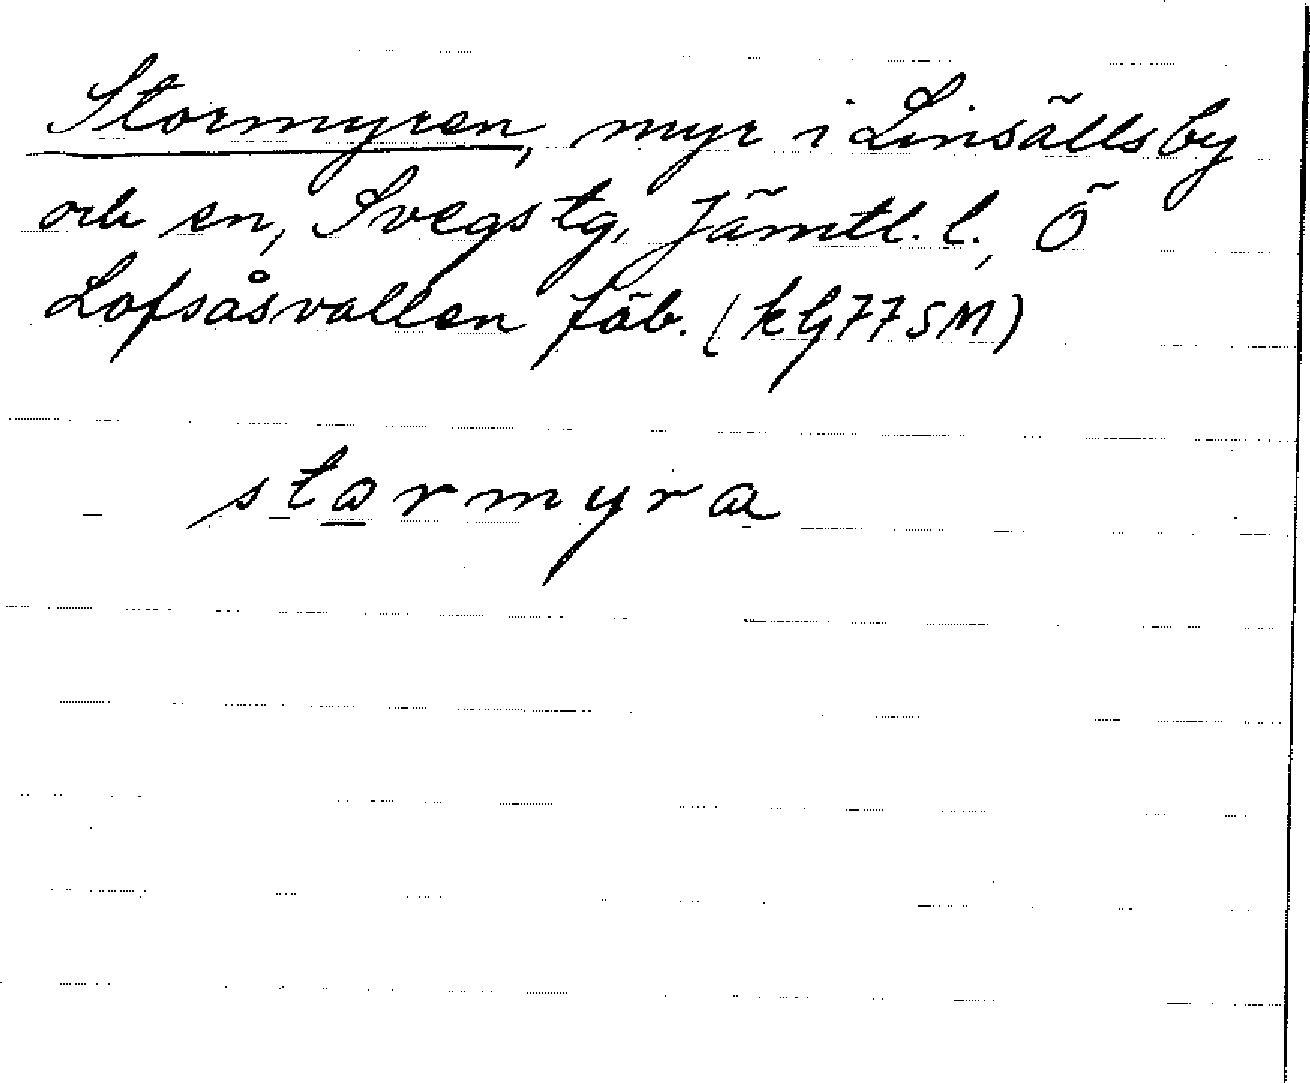 Stormyren, myr i Linsälls by
och sn, Svegs tg, Jämtl. l., Ö
Lofsåsvallen fäb. (kG77SM)
stormyra